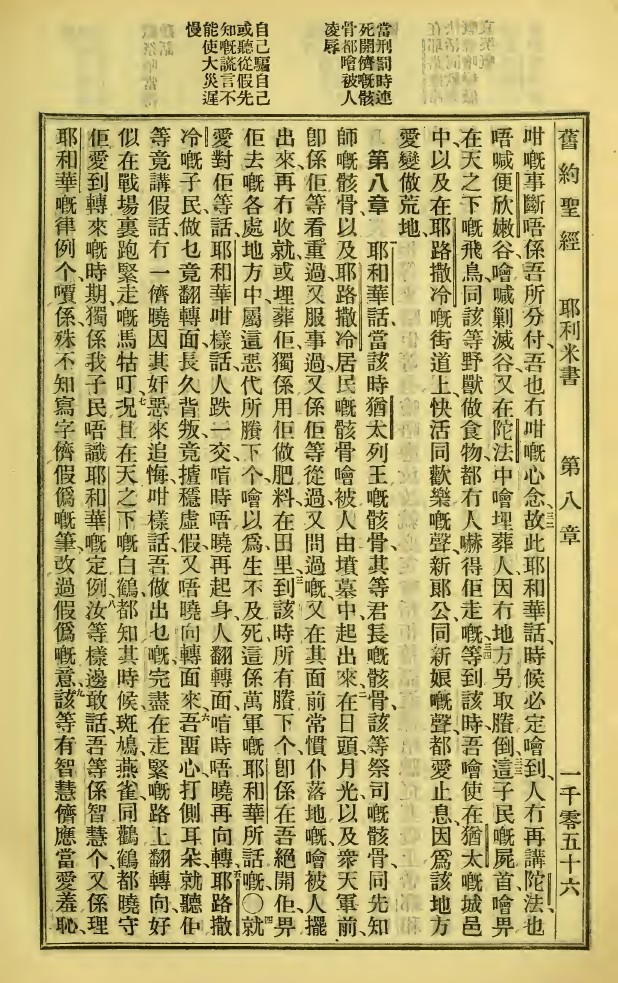 當刑罰時連
死開儕嘅骸
骨都噲被人
凌辱
自己驅自己
或聽從假先
知嘅謊言不
能使大災遲
慢
舊約聖經 耶利米書 第八章 一千零五十六
咁嘅事斷唔係吾所分付、吾也冇咁嘅心念、三二故此耶和華話、時候必定噲到、人冇再講陀法、也
唔喊便欣嫩谷、噲喊剿滅谷、又在陀法中噲埋葬人、因冇地方另取賸倒、三三這子民嘅屍首噲畀
在天之下嘅飛鳥、同該等野獸做食物、都冇人嚇得佢走嘅、三四等到該時、吾噲使在猶太嘅城邑
中、以及在耶路撒冷嘅街道上、快活同歡樂嘅聲、新郎公同新娘嘅聲、都愛止息、因爲該地方
愛變做荒地
第八章 一耶和華話、當該時猶太列王嘅骸骨、其等君長嘅骸骨、該等祭司嘅骸骨、同先知
師嘅骸骨、以及耶路撒冷居民嘅骸骨、噲被人由墳墓中起出來、二在日頭月光、以及衆天軍前、
卽係佢等看重過、又服事過、又係佢等從過、又問過嘅、又在其面前常慣仆落地嘅、噲被人擺
出來、再冇收就、或埋葬佢、獨係用佢做肥料在田里、三到該時所有賸下个、卽係在吾絕開佢畀
佢去嘅各處地方中、屬這惡代所賸下个、噲以爲生不及死、這係萬軍嘅耶和華所話嘅、〇四就
愛對佢等話、耶和華咁樣話、人跌一交、喑時唔曉再起身、人翻轉面、喑時唔曉再向轉、五耶路撒
冷嘅子民、做乜竟翻轉面、長久背叛、竟揸穩虛假、又唔曉向轉面來、六吾畱心打側耳朵就聽、佢
等竟講假話、冇一儕曉因其奸惡來追悔、咁樣話、吾做出乜嘅、完盡在走緊嘅路上翻轉向、好
似在戰場裏跑緊走嘅馬牯叮、七况且在天之下嘅白鶴都知其時候、斑鳩燕雀、同鸛鶴都曉守
佢愛到轉來嘅時期、獨係我子民唔識耶和華嘅定例、八汝等樣邊敢話、吾等係智慧个、又係理
耶和華嘅律例个、嘪係、殊不知寫字儕假僞嘅筆、改過假僞嘅意、九該等有智慧儕應當愛羞恥、